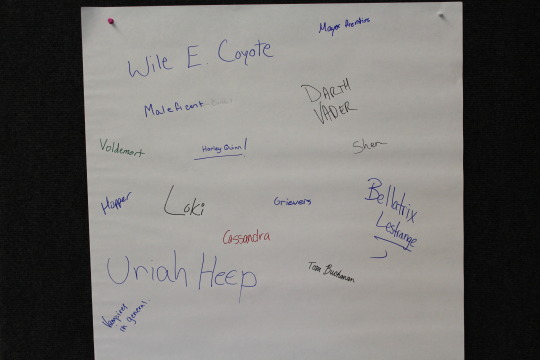 Mayor Prentiss
Wile E. Coyote
Maleficent
DARTH
VADER
Voldemort
Harley Quinn!
Shen
Hopper
Loki
Grievers
Bellatrix
Lestrange
Cassandra
Uriah Heep
Tom Buchanan
Vampires
in general.